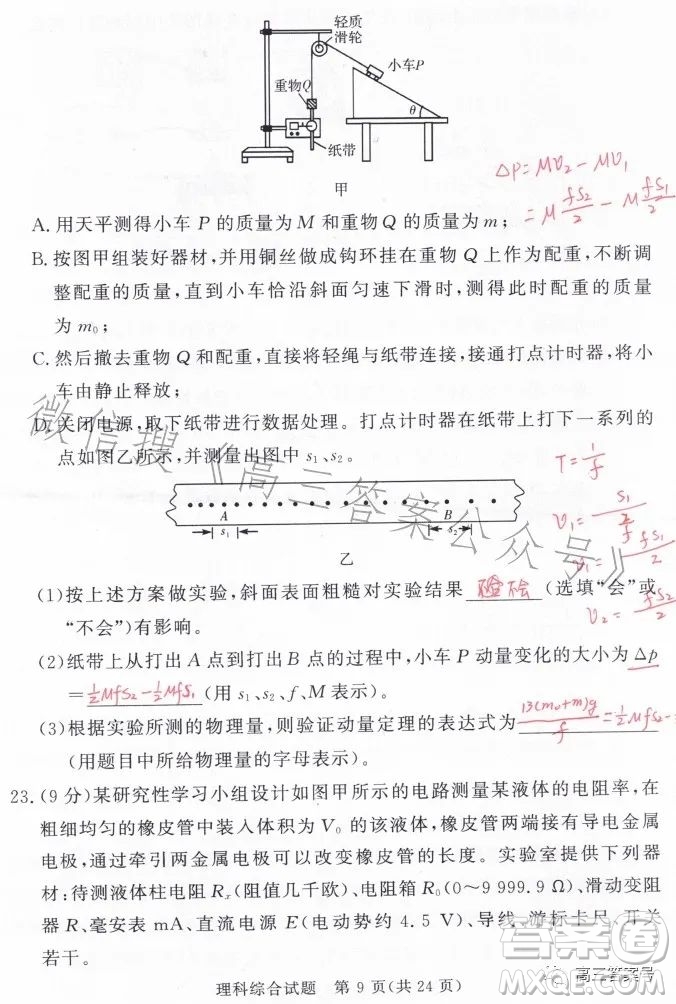 轻质
滑轮
小车P
重物Q
θ
纸带
甲
ΔP=MV₂-MV₁
=M fs₂/2 - M fs₁/2
A. 用天平测得小车 P 的质量为 M 和重物 Q 的质量为 m；
B. 按图甲组装好器材，并用铜丝做成钩环挂在重物 Q 上作为配重，不断
调整配重的质量，直到小车恰沿斜面匀速下滑，测得此时配重的质量
为 m₀；
C. 然后撤去重物 Q 和配重，直接将轻绳与纸带连接，接通打点计时器，将小
车由静止释放；
D. 关闭电源，取下纸带进行数据处理。打点计时器在纸带上打下一系列的
点如图乙所示，并测量出图中 s₁、s₂。
T=1/f
A
B
s₁
s₂
乙
V₁=s₁/(2/f)
V₁=fs₁/2
V₂=fs₂/2
(1)按上述方案做实验，斜面表面粗糙对实验结果 (选填“会”或
“不会”)有影响。
(2)纸带上从打出 A 点到打出 B 点的过程中，小车 P 动量变化的大小为 Δp
=½Mfs₂-½Mfs₁ (用 s₁、s₂、f、M 表示)。
(3)根据实验所测的物理量，则验证动量定理的表达式为 13(m₀+m)g/f=½Mfs₂-
(用题目中所给物理量的字母表示)。
23. (9 分)某研究性学习小组设计如图甲所示的电路测量某液体的电阻率，在
粗细均匀的橡皮管中装入体积为 V₀ 的该液体，橡皮管两端接有导电金属
电极，通过牵引两金属电极可以改变橡皮管的长度。实验室提供下列器
材：待测液体柱电阻 Rₓ(阻值几千欧)、电阻箱 R₀(0～9 999.9 Ω)、滑动变阻
器 R、毫安表 mA、直流电源 E(电动势约 4.5 V)、导线、游标卡尺、开关
若干。
理科综合试题 第 9 页(共 24 页)
微信搜《高三答案公众号》
答案圈
高三答案号